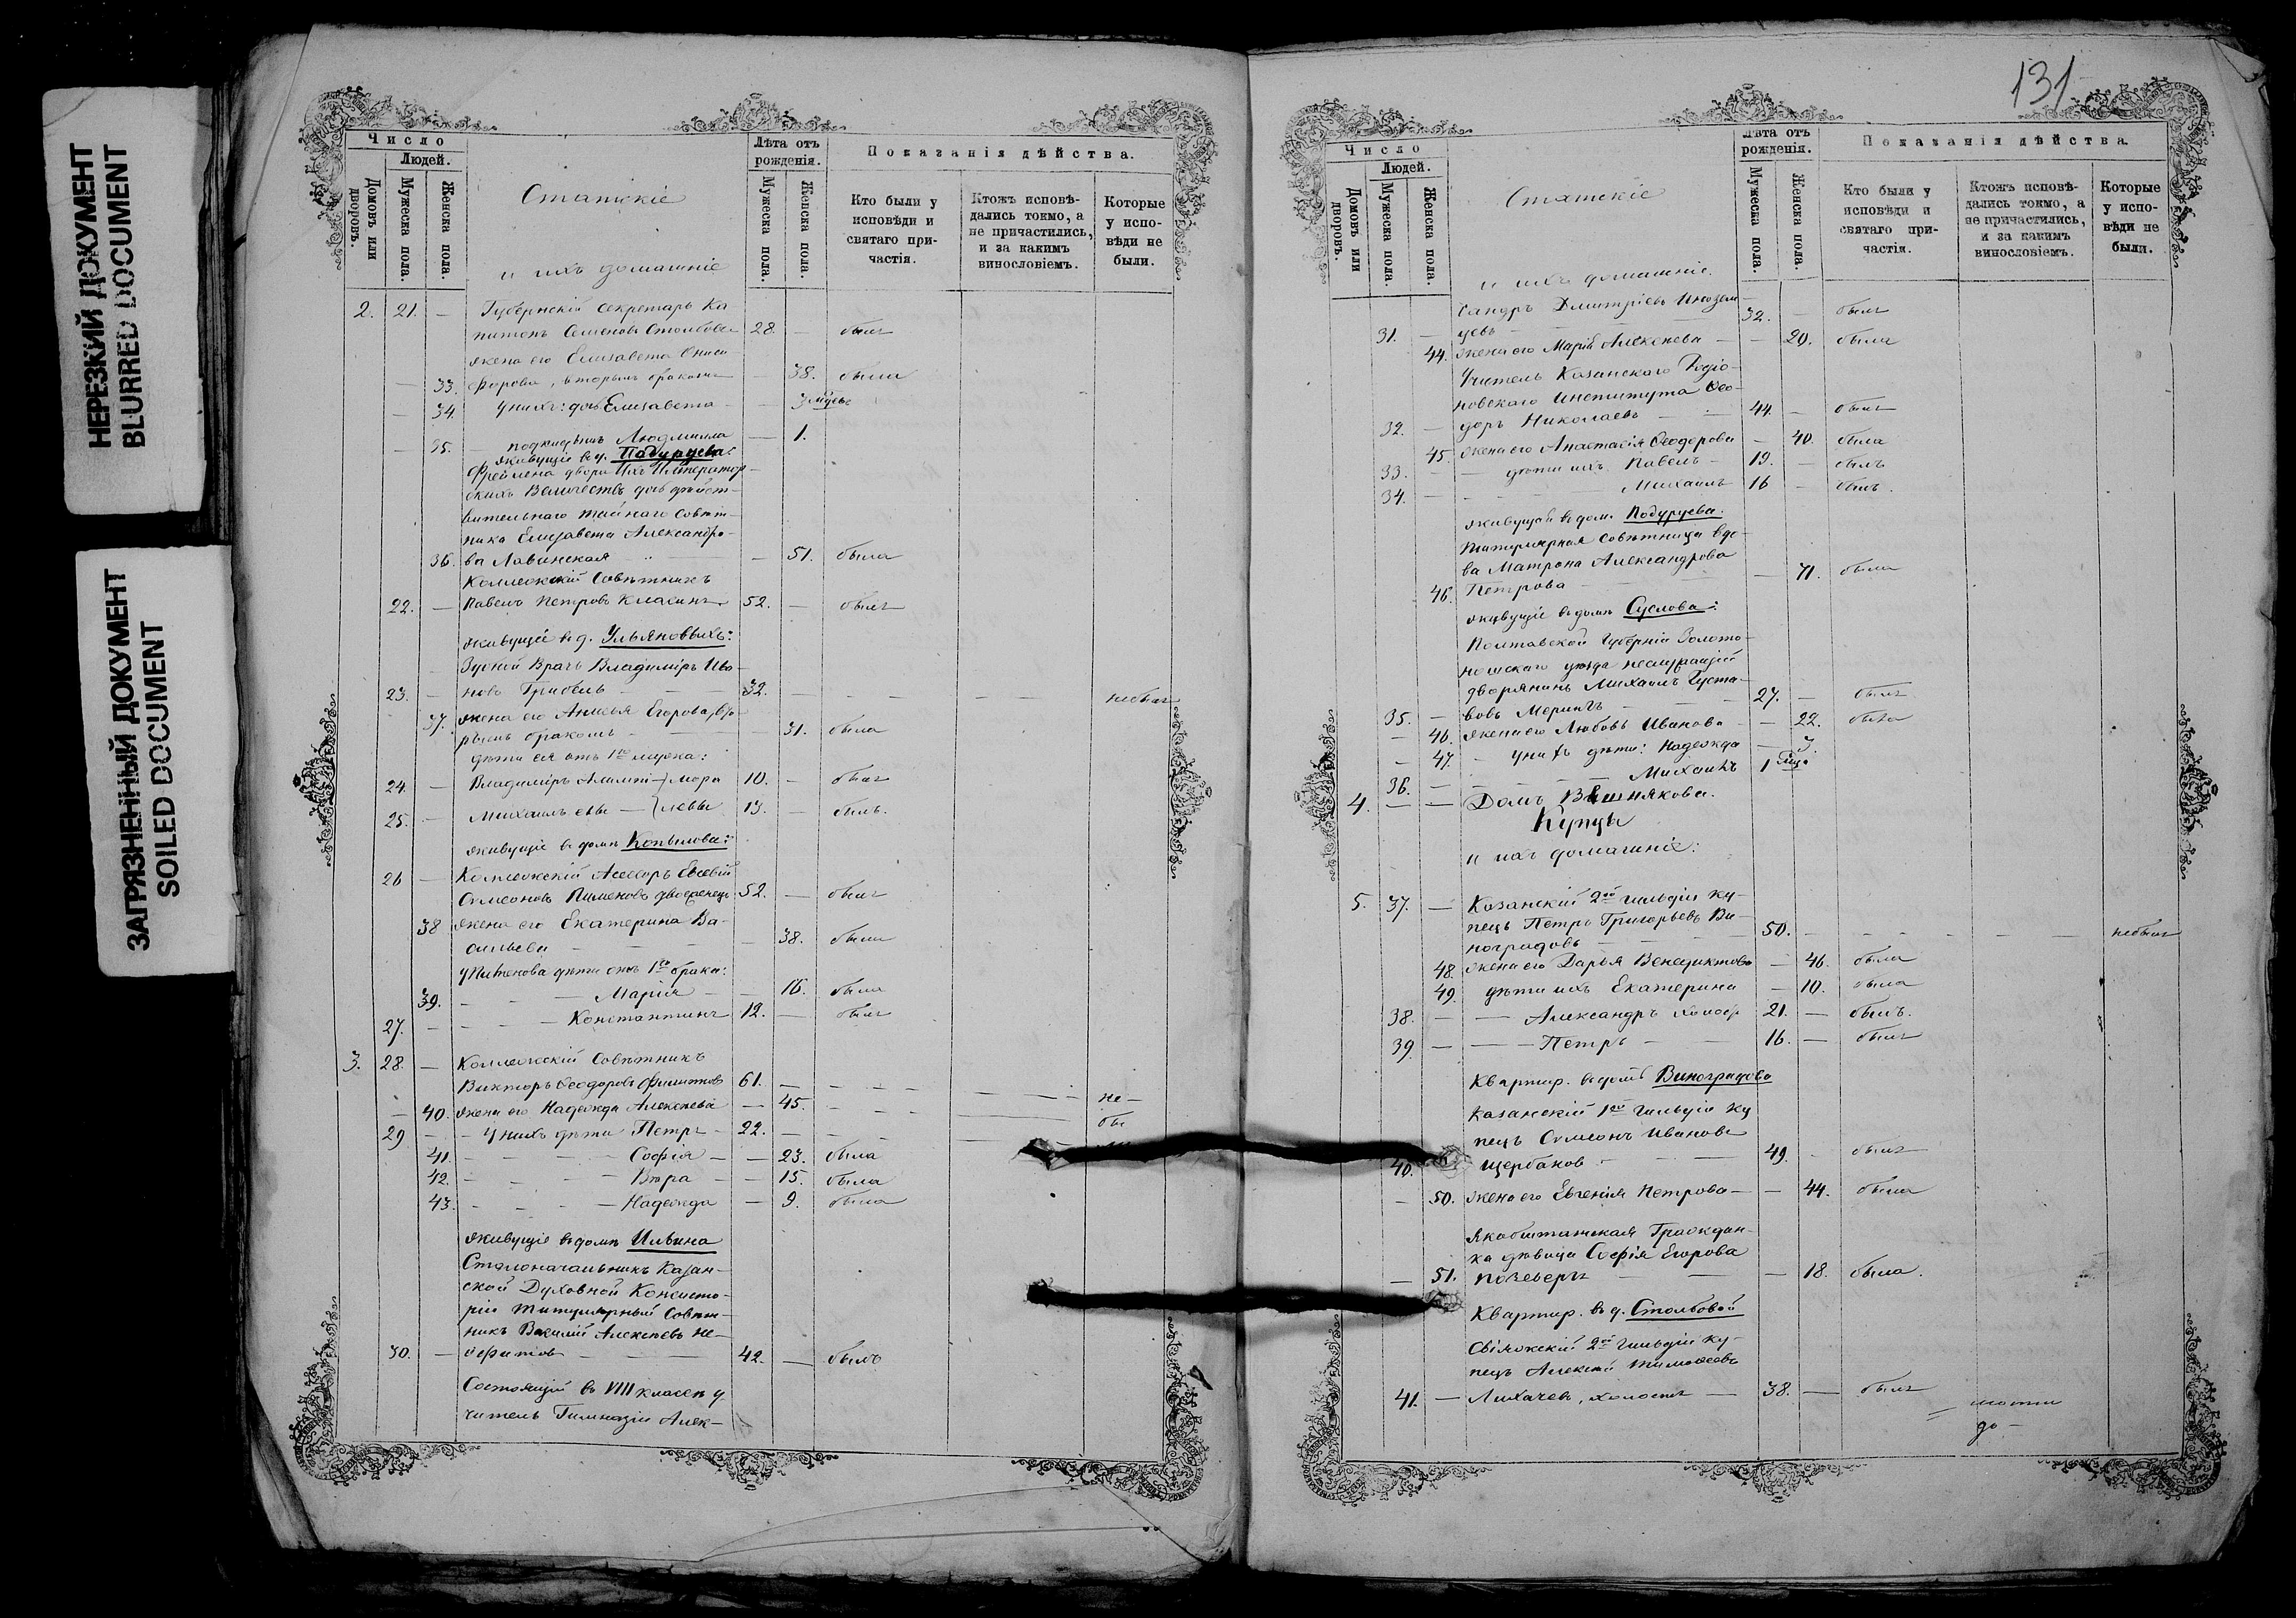 НЕРЕЗКИЙ ДОКУМЕНТ
BLURRED DOCUMENT
ЗАГРЯЗНЕННЫЙ ДОКУМЕНТ
SOILED DOCUMENT
Число
Людей.
Домовъ или дворовъ.
Мужеска пола.
Женска пола.
Статскіе
и ихъ домашніе
Лѣта отъ рожденія.
Мужеска пола.
Женска пола.
Показанія дѣйства.
Кто были у исповѣди и святаго причастія.
Ктожъ исповѣдались токмо, а не причастились, и за какимъ винословіемъ.
Которые у исповѣди не были.
2. 21. — Губернскій Секретарь Ка
питонъ Семеновъ Столбовъ 28. — былъ
жена его Елисавета Ониси
— 33. форова, вторымъ бракомъ — 38. была
— 34. у нихъ: дочь Елисавета — 3 мѣсяц.
— 35. — подкидышъ Людмилла — 1.
живущіе въ д. Подуруева:
Фрейлена двора Ихъ Император
скихъ Величествъ дочь дѣйст-
вительнаго тайнаго Совѣт-
ника Елисавета Александро-
36. ва Лавинская — 51. была
Коллежскій Совѣтникъ
22. — Павелъ Петровъ 52. — былъ
живущіе въ д. Ульяновыхъ:
Зубной Врачъ Владиміръ Ива-
23. — новъ Грибель — 32. — небылъ
37. жена его Егорова, вто-
рымъ бракомъ — 31. была
дѣти ея отъ 1го мужа:
24. — Владиміръ 10. — былъ
25. — Михаилъ 13. — былъ.
живущіе въ домѣ Копылова:
26 — Коллежскій Ассесоръ Евсевій
Симеоновъ Пименовъ 52. — былъ
38 жена его Екатерина Ва-
сильева — 38. была
у Пименова дѣти отъ 1го брака:
39. — Марія — 16. была
27. — Константинъ 12. — былъ
3. 28. — Коллежскій Совѣтникъ
Викторъ Ѳеодоровъ Филиповъ 61. —
— 40. жена его Надежда Алексѣева — 45. — не —
29 — у нихъ дѣти Петръ — 22. — бы
41. — Софія — 23. была
42. — Вѣра — 15. была
43. — Надежда — 9. была
живущіе въ домѣ Ильина
Столоначальникъ Казан-
ской Духовной Консисто-
ріи Титулярный Совѣт-
никъ Василій Алексѣевъ Не-
30. — офитовъ 42. — былъ
Состоящій въ VIII классѣ у-
читель Гимназіи Алек-
131
Число
Людей.
Домовъ или дворовъ.
Мужеска пола.
Женска пола.
Статскіе
и ихъ домашніе.
Лѣта отъ рожденія.
Мужеска пола.
Женска пола.
Показанія дѣйства.
Кто были у исповѣди и святаго причастія.
Ктожъ исповѣдались токмо, а не причастились, и за какимъ винословіемъ.
Которые у исповѣди не были.
сандръ Дмитріевъ Инозем
31. — цевъ 32. — былъ
44. жена его Марія Алексѣева — 29. была
Учитель Казанскаго Родіо-
новскаго Института Ѳео-
32. — доръ Николаевъ 44. — былъ
45. жена его Анастасія Ѳеодорова — 40. была
33. — дѣти ихъ Павелъ 19. — былъ
34. — Михаилъ 16 — былъ.
живущая въ дом. Подуруева:
Титулярная Совѣтница вдо-
ва Матрона Александрова
46. Петрова — 71. была
живущіе въ домѣ Суслова:
Полтавской Губерніи Золото-
ношскаго уѣзда неслужащій
дворянинъ Михаилъ Густа-
35. — вовъ Мерингъ 27. — былъ
— 46. жена его Любовь Иванова — 22. была
— 47. — у нихъ дѣти: Надежда — 3.
36. — Михаилъ 1
4. — — Домъ Вишнякова.
Купцы
и ихъ домашніе:
5. 37. — Казанскій 2ой гильдіи ку-
пецъ Петръ Григорьевъ Ви-
ноградовъ 50. — небылъ
48. жена его Дарья Венедиктова — 46. была
49. дѣти ихъ Екатерина — 10. была
38. — Александръ холост 21. — былъ.
39. — Петръ 16. — былъ
Квартир. въ домѣ Виноградова
Казанскій 1ой гильдіи ку
пецъ Симеонъ Ивановъ
40. Щербаковъ 49. — былъ
— 50. жена его Евгенія Петрова — 44. была
Якобштатская Граждан-
ка дѣвица Софія Егорова
— 51. — 18. была.
Квартир. въ д. Столбовой
Свіяжскій 2ой гильдіи ку-
пецъ Алексѣй Тимофеевъ
41. — Лихачевъ, холостъ — 38. — былъ
до —